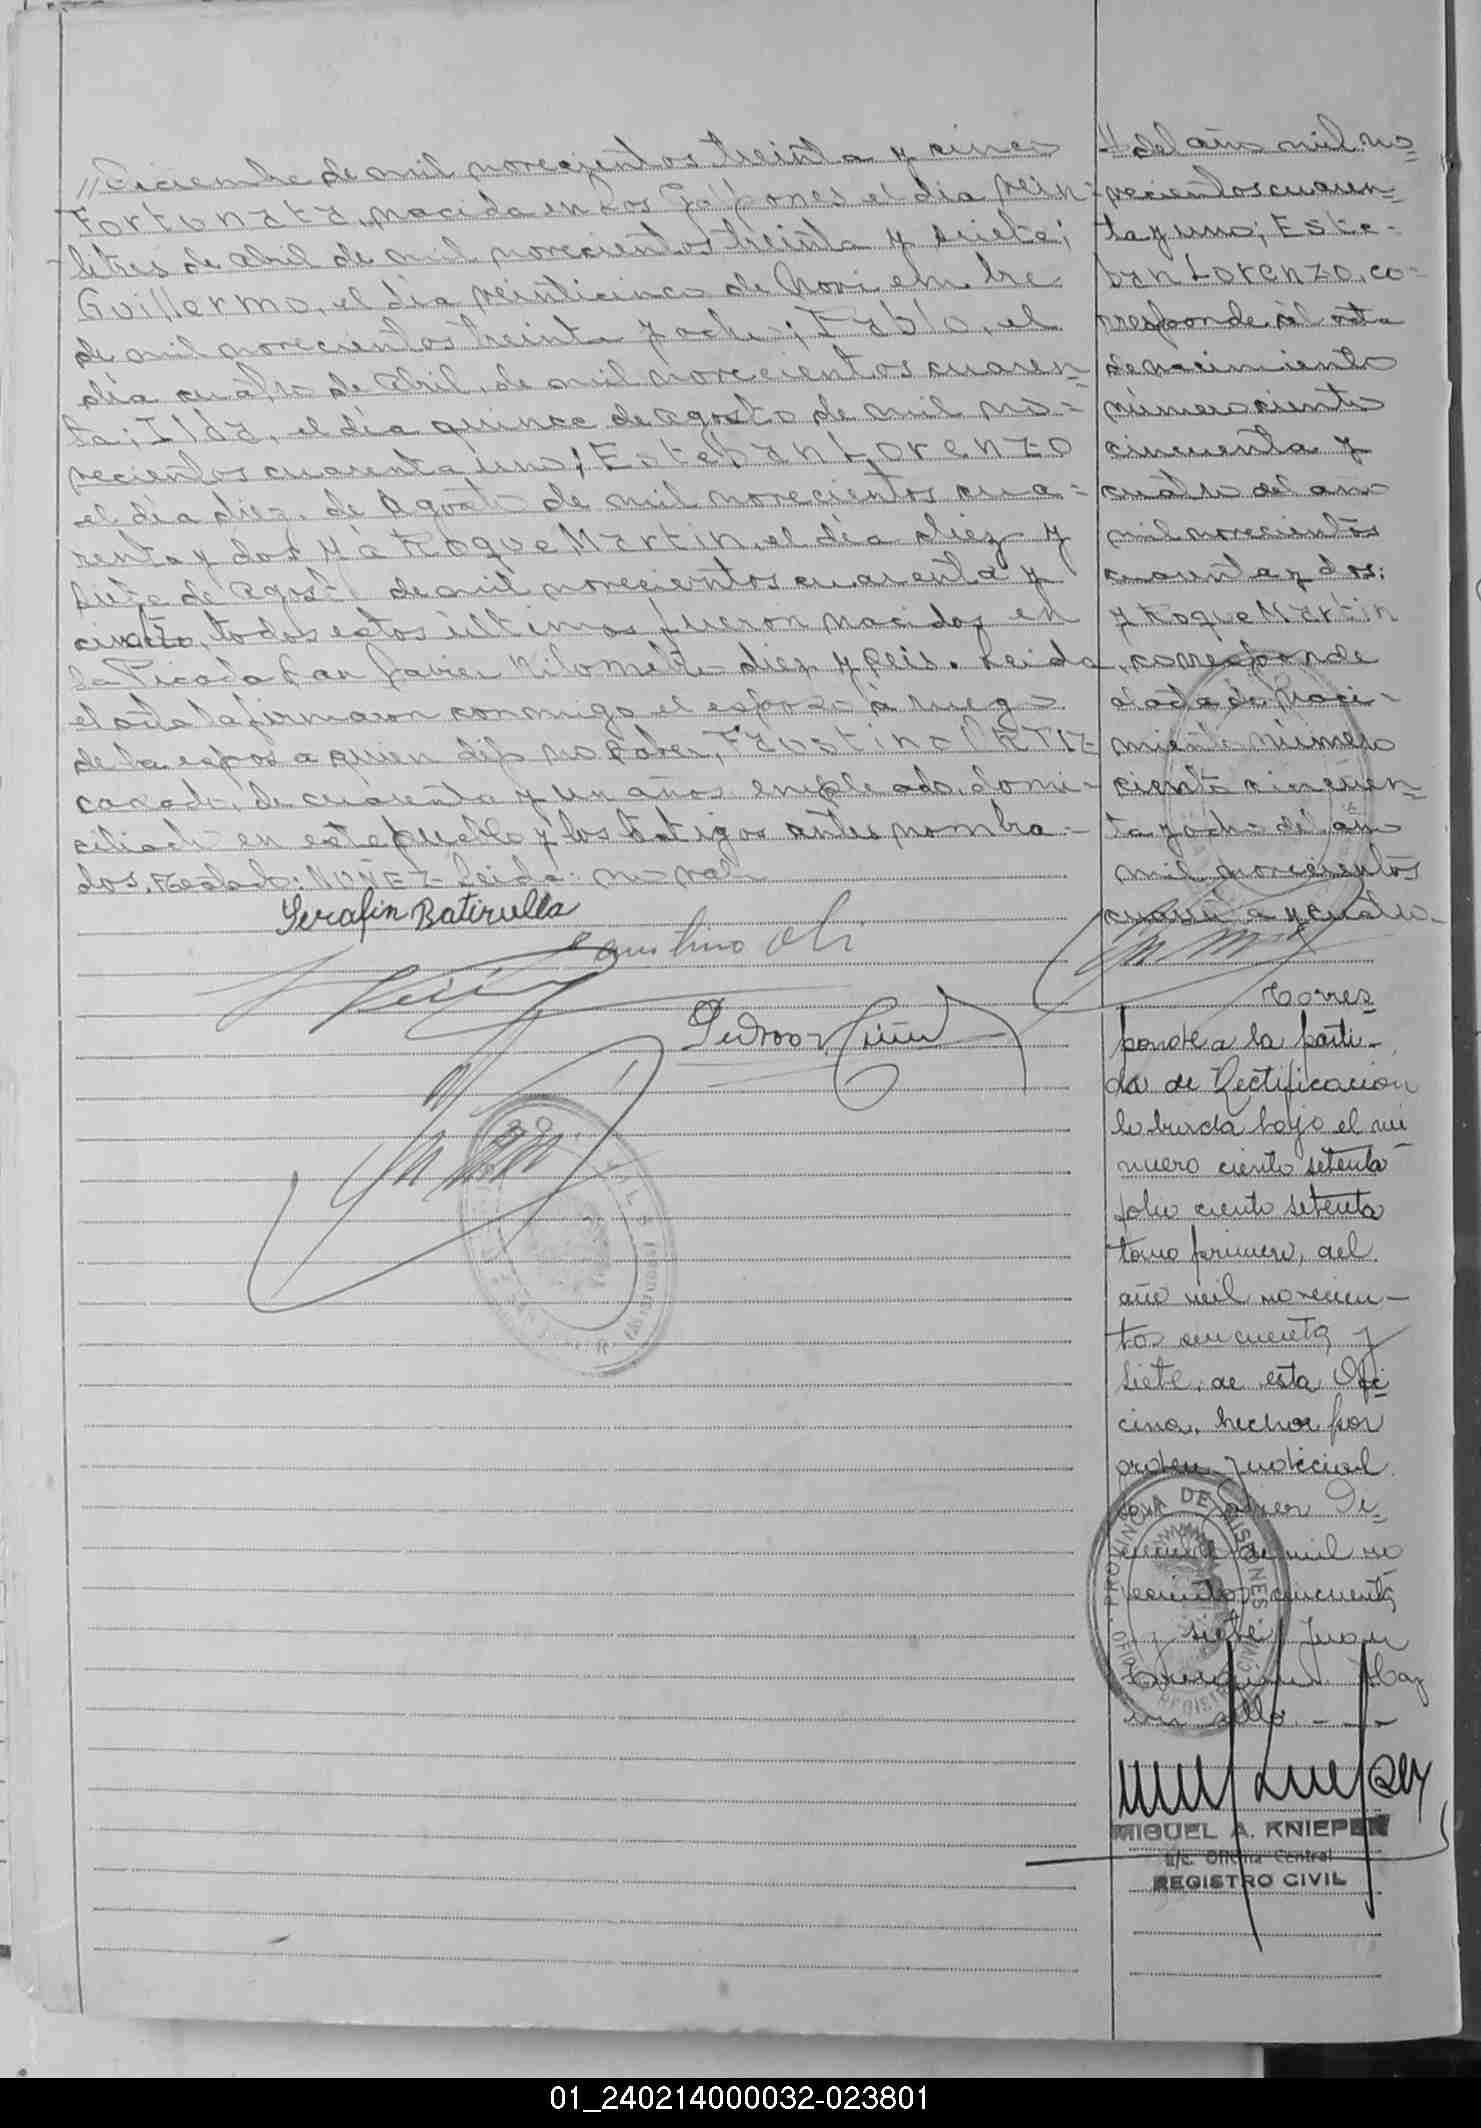 // Diciembre de mil novecientos treinta y cinco
Fortunata, nacida en Los Galpones el día vein-
titres de Abril de mil novecientos treinta y siete;
Guillermo, el día veinticinco de Noviembre
de mil novecientos treinta y ocho; Pablo, el
día cuatro de Abril, de mil novecientos cuaren-
ta; Ilda, el día quince de Agosto de mil no-
vecientos cuarenta uno; Esteban Lorenzo
el día diez de Agosto de mil novecientos cua-
renta y dos y á Roque Martin, el día diez y
siete de Agosto de mil novecientos cuarenta y
cuatro, todos estos últimos fueron nacidos en
la Picada San Javier Kilometro diez y seis. Leida
el acta la firmaron conmigo el esposo á ruego
de la esposa quien dijo no saber, Faustino ORTIZ
casado, de cuarenta y un años empleado, domi-
ciliado en este pueblo y los testigos antes nombra-
dos. Testado: NUÑEZ Leida: no vale
Serafin Batirulla
Faustino
Pedro
// del año mil no-
vecientos cuaren-
ta y uno; Este-
ban Lorenzo, co-
rresponde al acta
de nacimiento
número ciento
cincuenta y
cuatro del año
mil novecientos
cuarenta y dos;
y Roque Martin
corresponde
al acta de Naci-
miento número
ciento cincuen-
ta y ocho del año
mil novecientos
cuarenta y cuatro.
Corres-
ponde a la parti-
da de Rectificación
labrada bajo el nú-
mero ciento setenta
folio ciento setenta
tomo primero, del
año mil novecien-
tos cincuenta y
siete, de esta Ofi-
cina, hecha por
orden judicial.
Javier Di-
ciembre de mil no
vecientos cincuenta
y siete Juan
Hay
un sello. - - -
PROVINCIA DE MISIONES
REGISTRO CIVIL
MIGUEL A. KNIEPER
a/c. Oficina Central
REGISTRO CIVIL
01_240214000032-023801